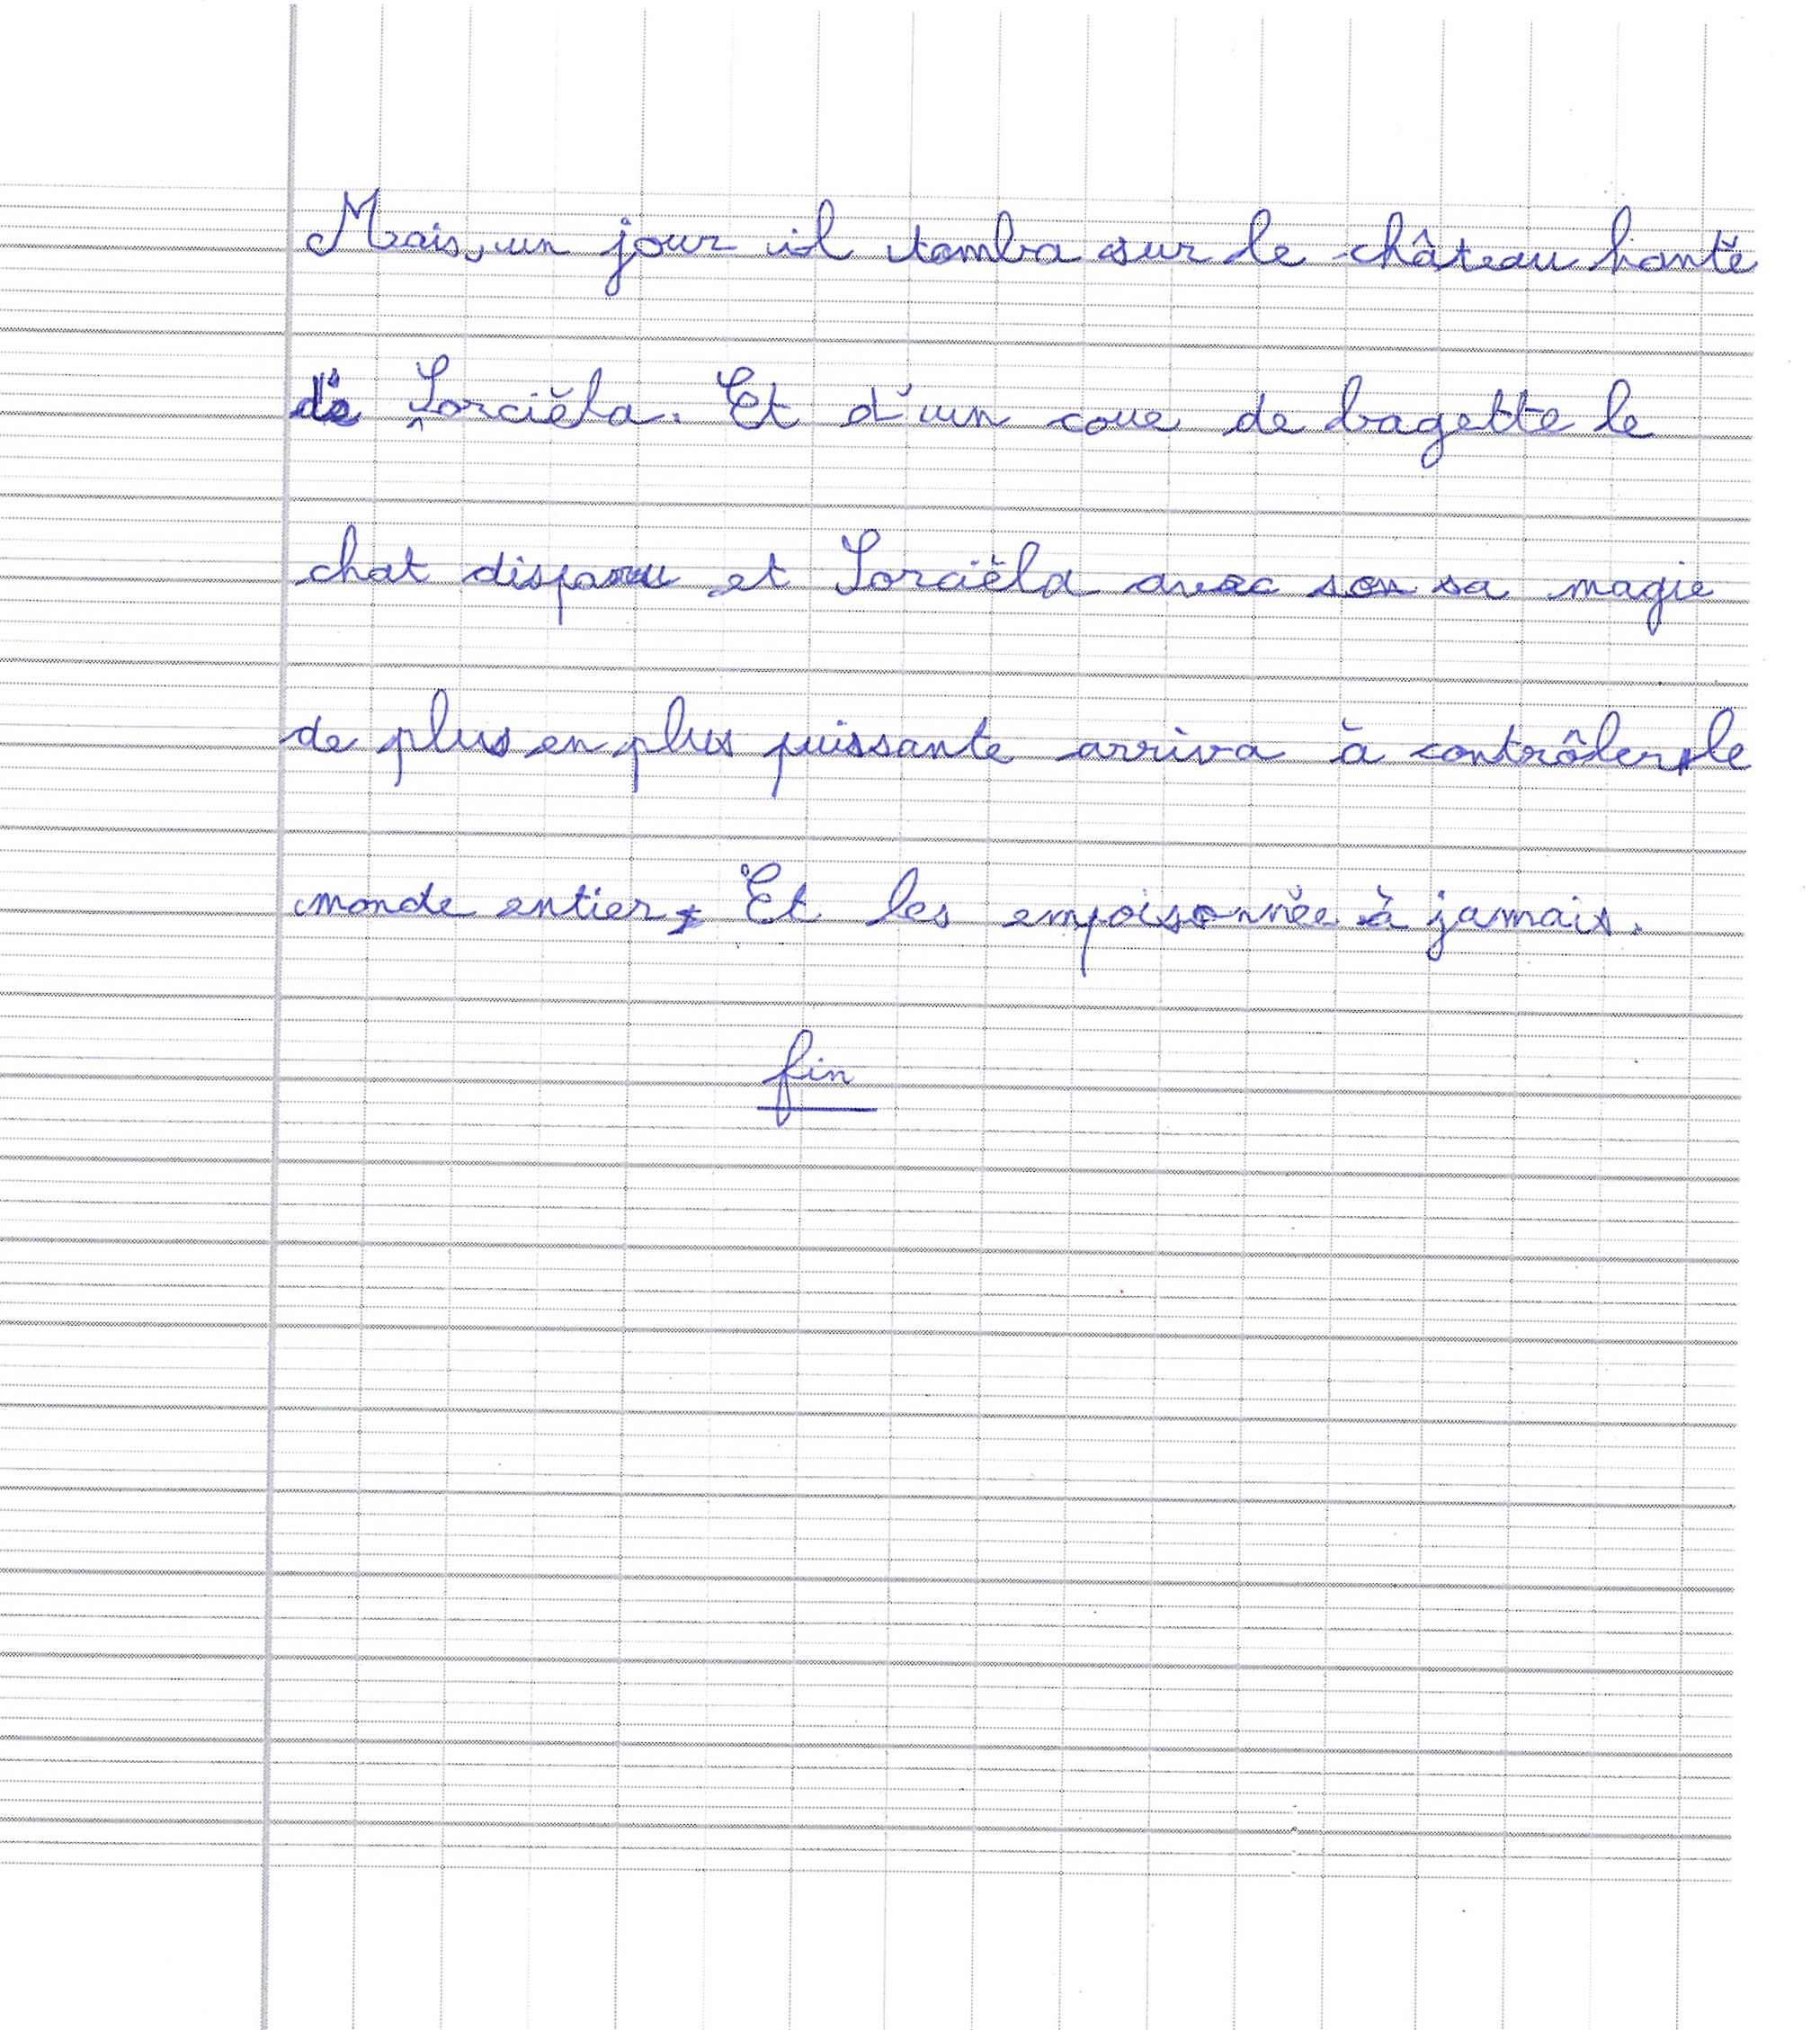 Mais, un jour il tomba sur le château hanté
de Sorcièla. Et d'un coue de bagette le
chat disparu et Sorcièla avec son sa magie
de plus en plus puissante arriva à contrôler le
monde entier. Et les empoisonnée à jamais.
fin